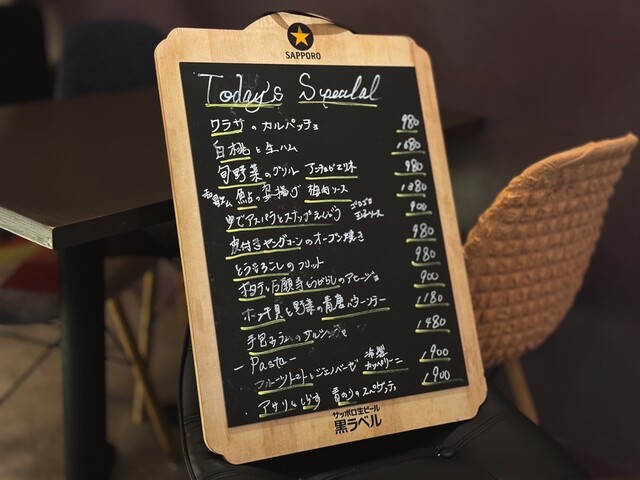 SAPPORO
Today's Special
ワラサ の カルパッチョ 980
白桃 と 生ハム 1680
旬野菜のグリル 980
鮎の 揚げ 梅肉ソース 1380
ゆでアスパラとスナップえんどう 900
皮付きヤングコーンのオーブン焼き 980
とうもろこしのフリット 980
ホタテと万願寺とうがらしのアヒージョ 900
ホッキ貝と野菜の青唐バター 1180
手包みラムの 1480
- Pasta -
フルーツトマトとジェノベーゼ 冷製カッペリーニ 1,900
アサリとしらす 青のりのスパゲッティ 1,900
サッポロ生ビール
黒ラベル